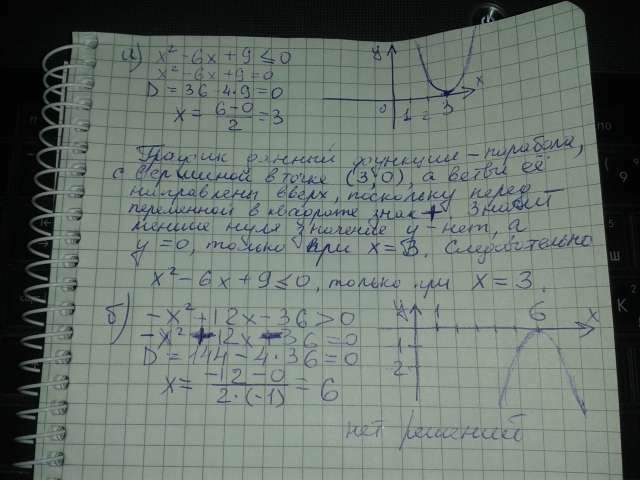 а) x² - 6x + 9 ≤ 0
x² - 6x + 9 = 0
D = 36 - 4·9 = 0
x = (6-0)/2 = 3
y x
0 1 2 3
График данной функции - парабола,
с вершиной в точке (3;0), а ветви её
направлены вверх, поскольку перед
переменной в квадрате знак +. Значит
меньше нуля значение y - нет, а
y = 0, только при x = 3. Следовательно
x² - 6x + 9 ≤ 0, только при x = 3.
б) -x² + 12x - 36 > 0
-x² + 12x - 36 = 0
D = 144 - 4·36 = 0
x = (-12-0)/(2·(-1)) = 6
y 1 6 x
1
2
нет решений